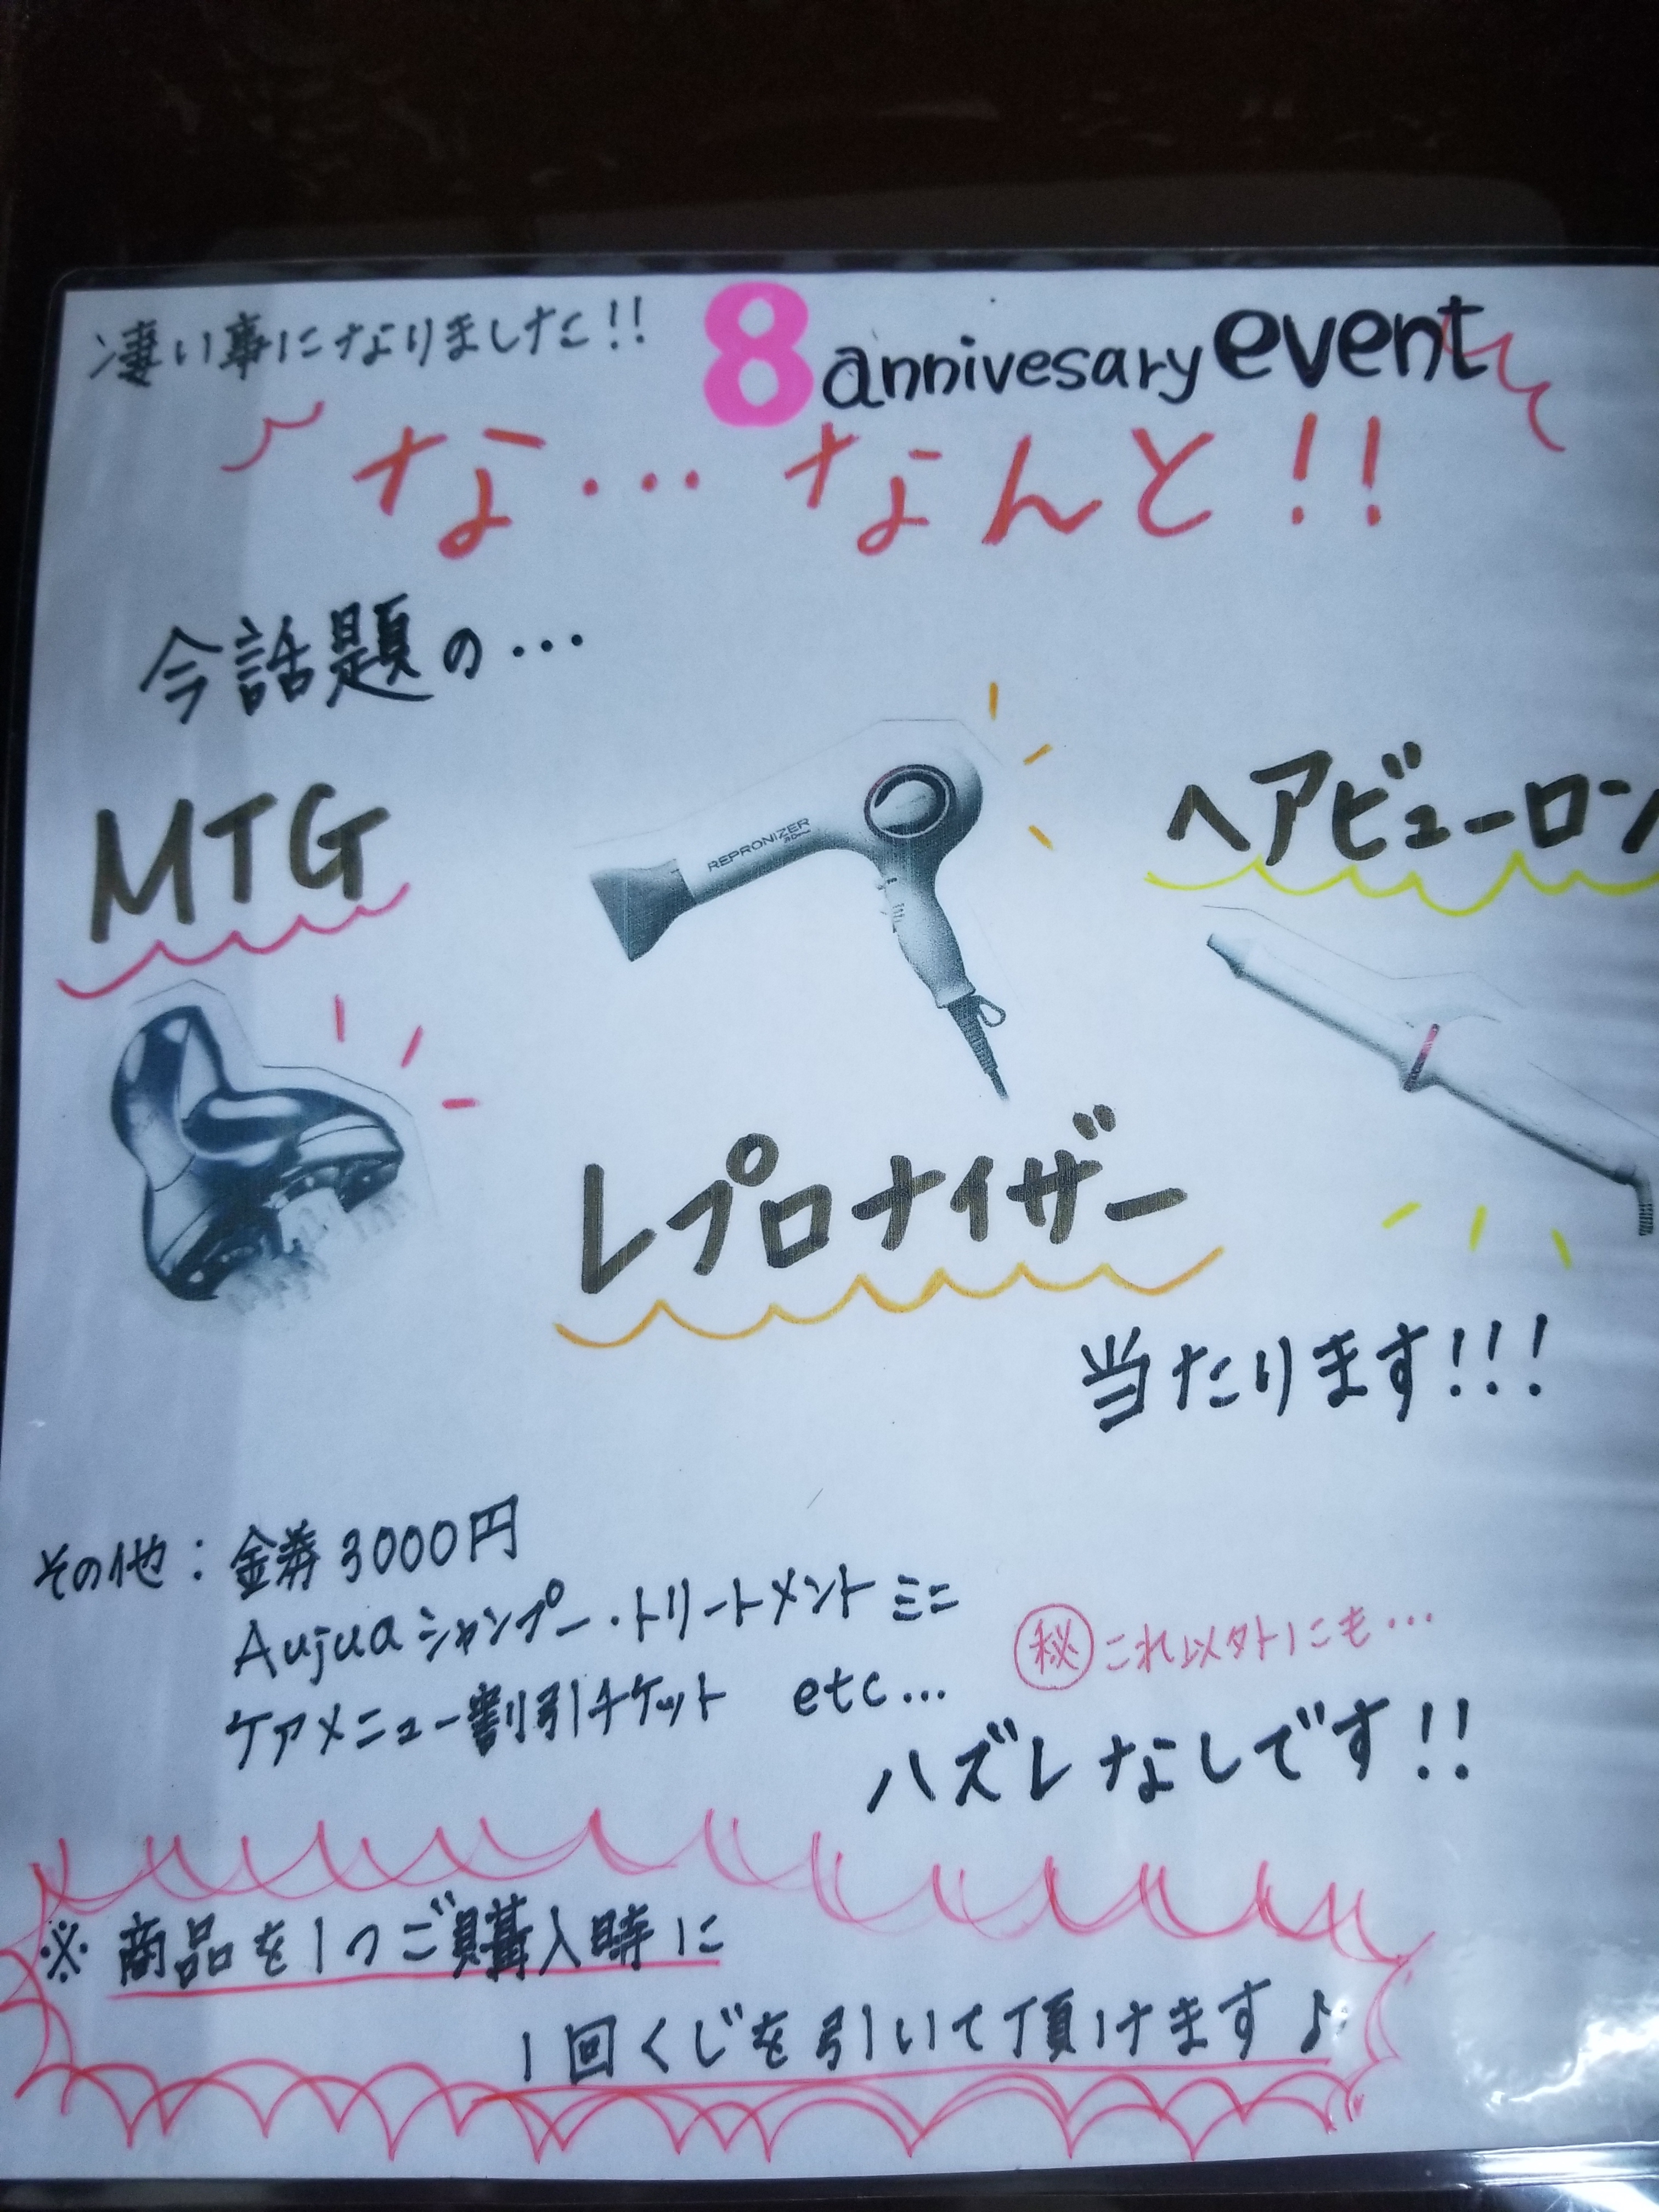 凄い事になりました!!
8 annivesary event
な…なんと!!
今話題の…
MTG
REPRONIZER
ヘアビューロン
レプロナイザー
当たります!!!
その他：金券3000円
Aujuaシャンプー・トリートメントミニ
ケアメニュー割引チケット etc…
㊙これ以外にも…
ハズレなしです!!
※商品を1つご購入時に
1回くじを引いて頂けます♪